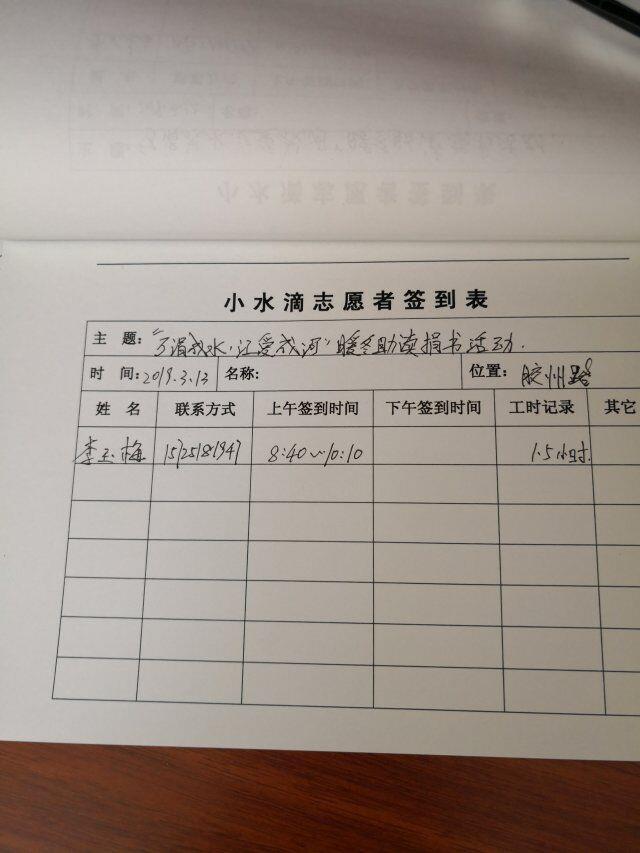 小水滴志愿者签到表
主 题：“汇涓成水·让爱成河”暖冬助读捐书活动.
时 间：2019.3.13 名称： 位置：胶州路
姓 名 联系方式 上午签到时间 下午签到时间 工时记录 其它
李玉梅 8:40~10:10 1.5小时.